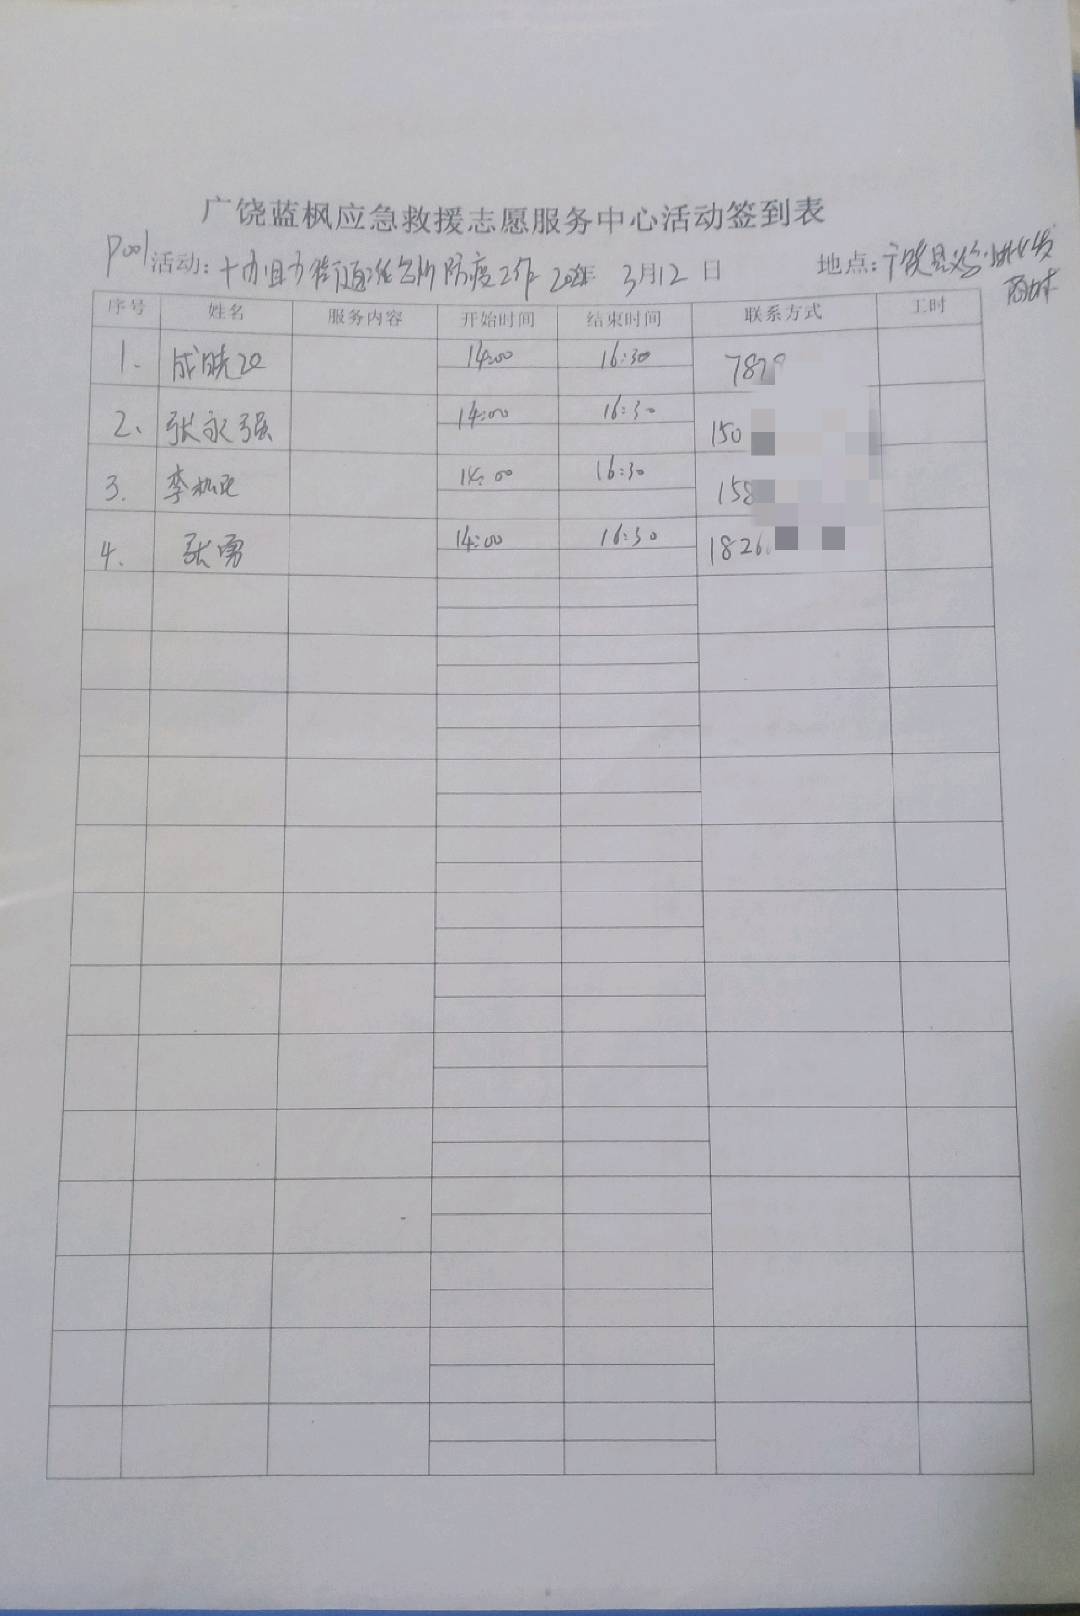 广饶蓝枫应急救援志愿服务中心活动签到表
P001 活动: 防疫工作 3月12日 地点: 广饶县
商城
序号 姓名 服务内容 开始时间 结束时间 联系方式 工时
1. 成晓 14:00 16:30 787
2、 张永强 14:00 16:30 150
3. 李 14:00 16:30 158
4. 张勇 14:00 16:30 1826